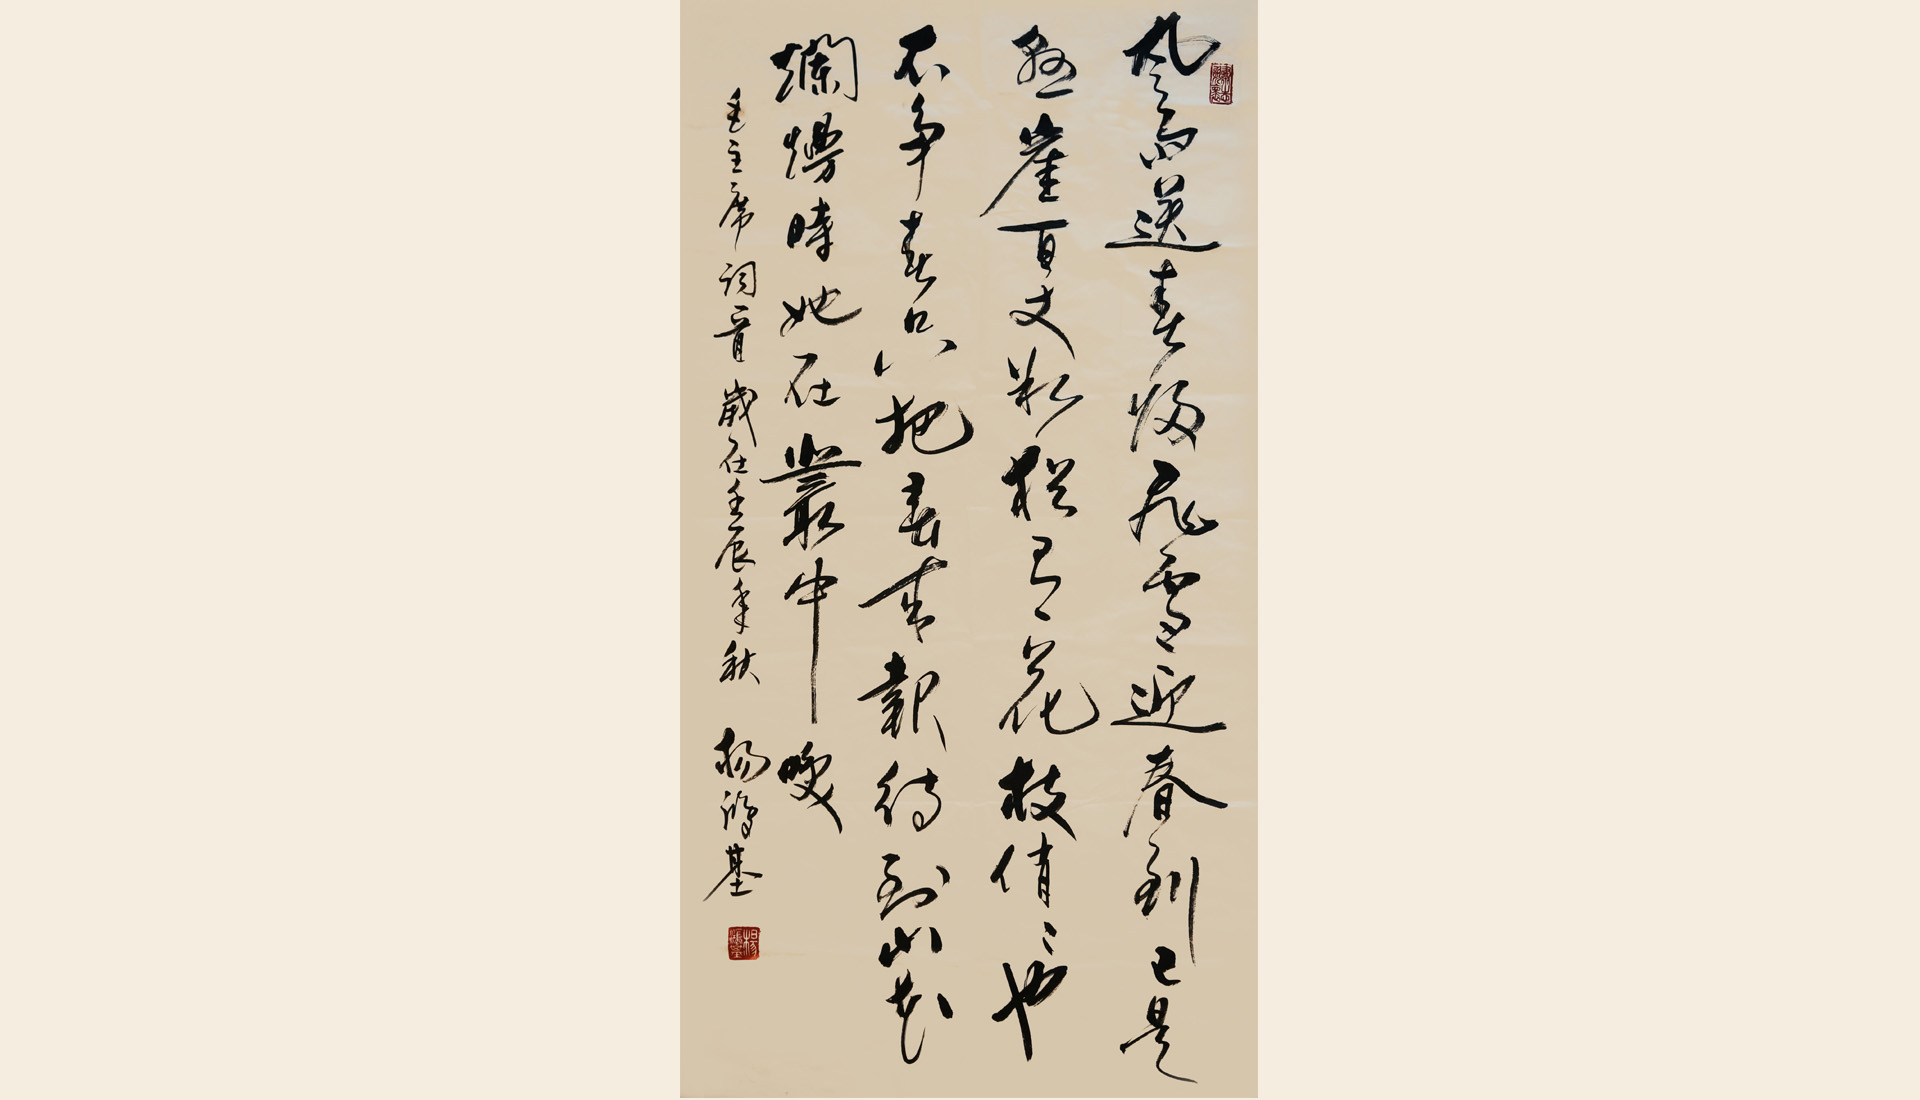 風雨送春歸飛雪迎春到已是
懸崖百丈冰猶有花枝俏〻也
不争春只把春來報待到山花
爛熳時她在叢中咲
毛主席詞一首 歲在壬辰年秋 楊鴻基